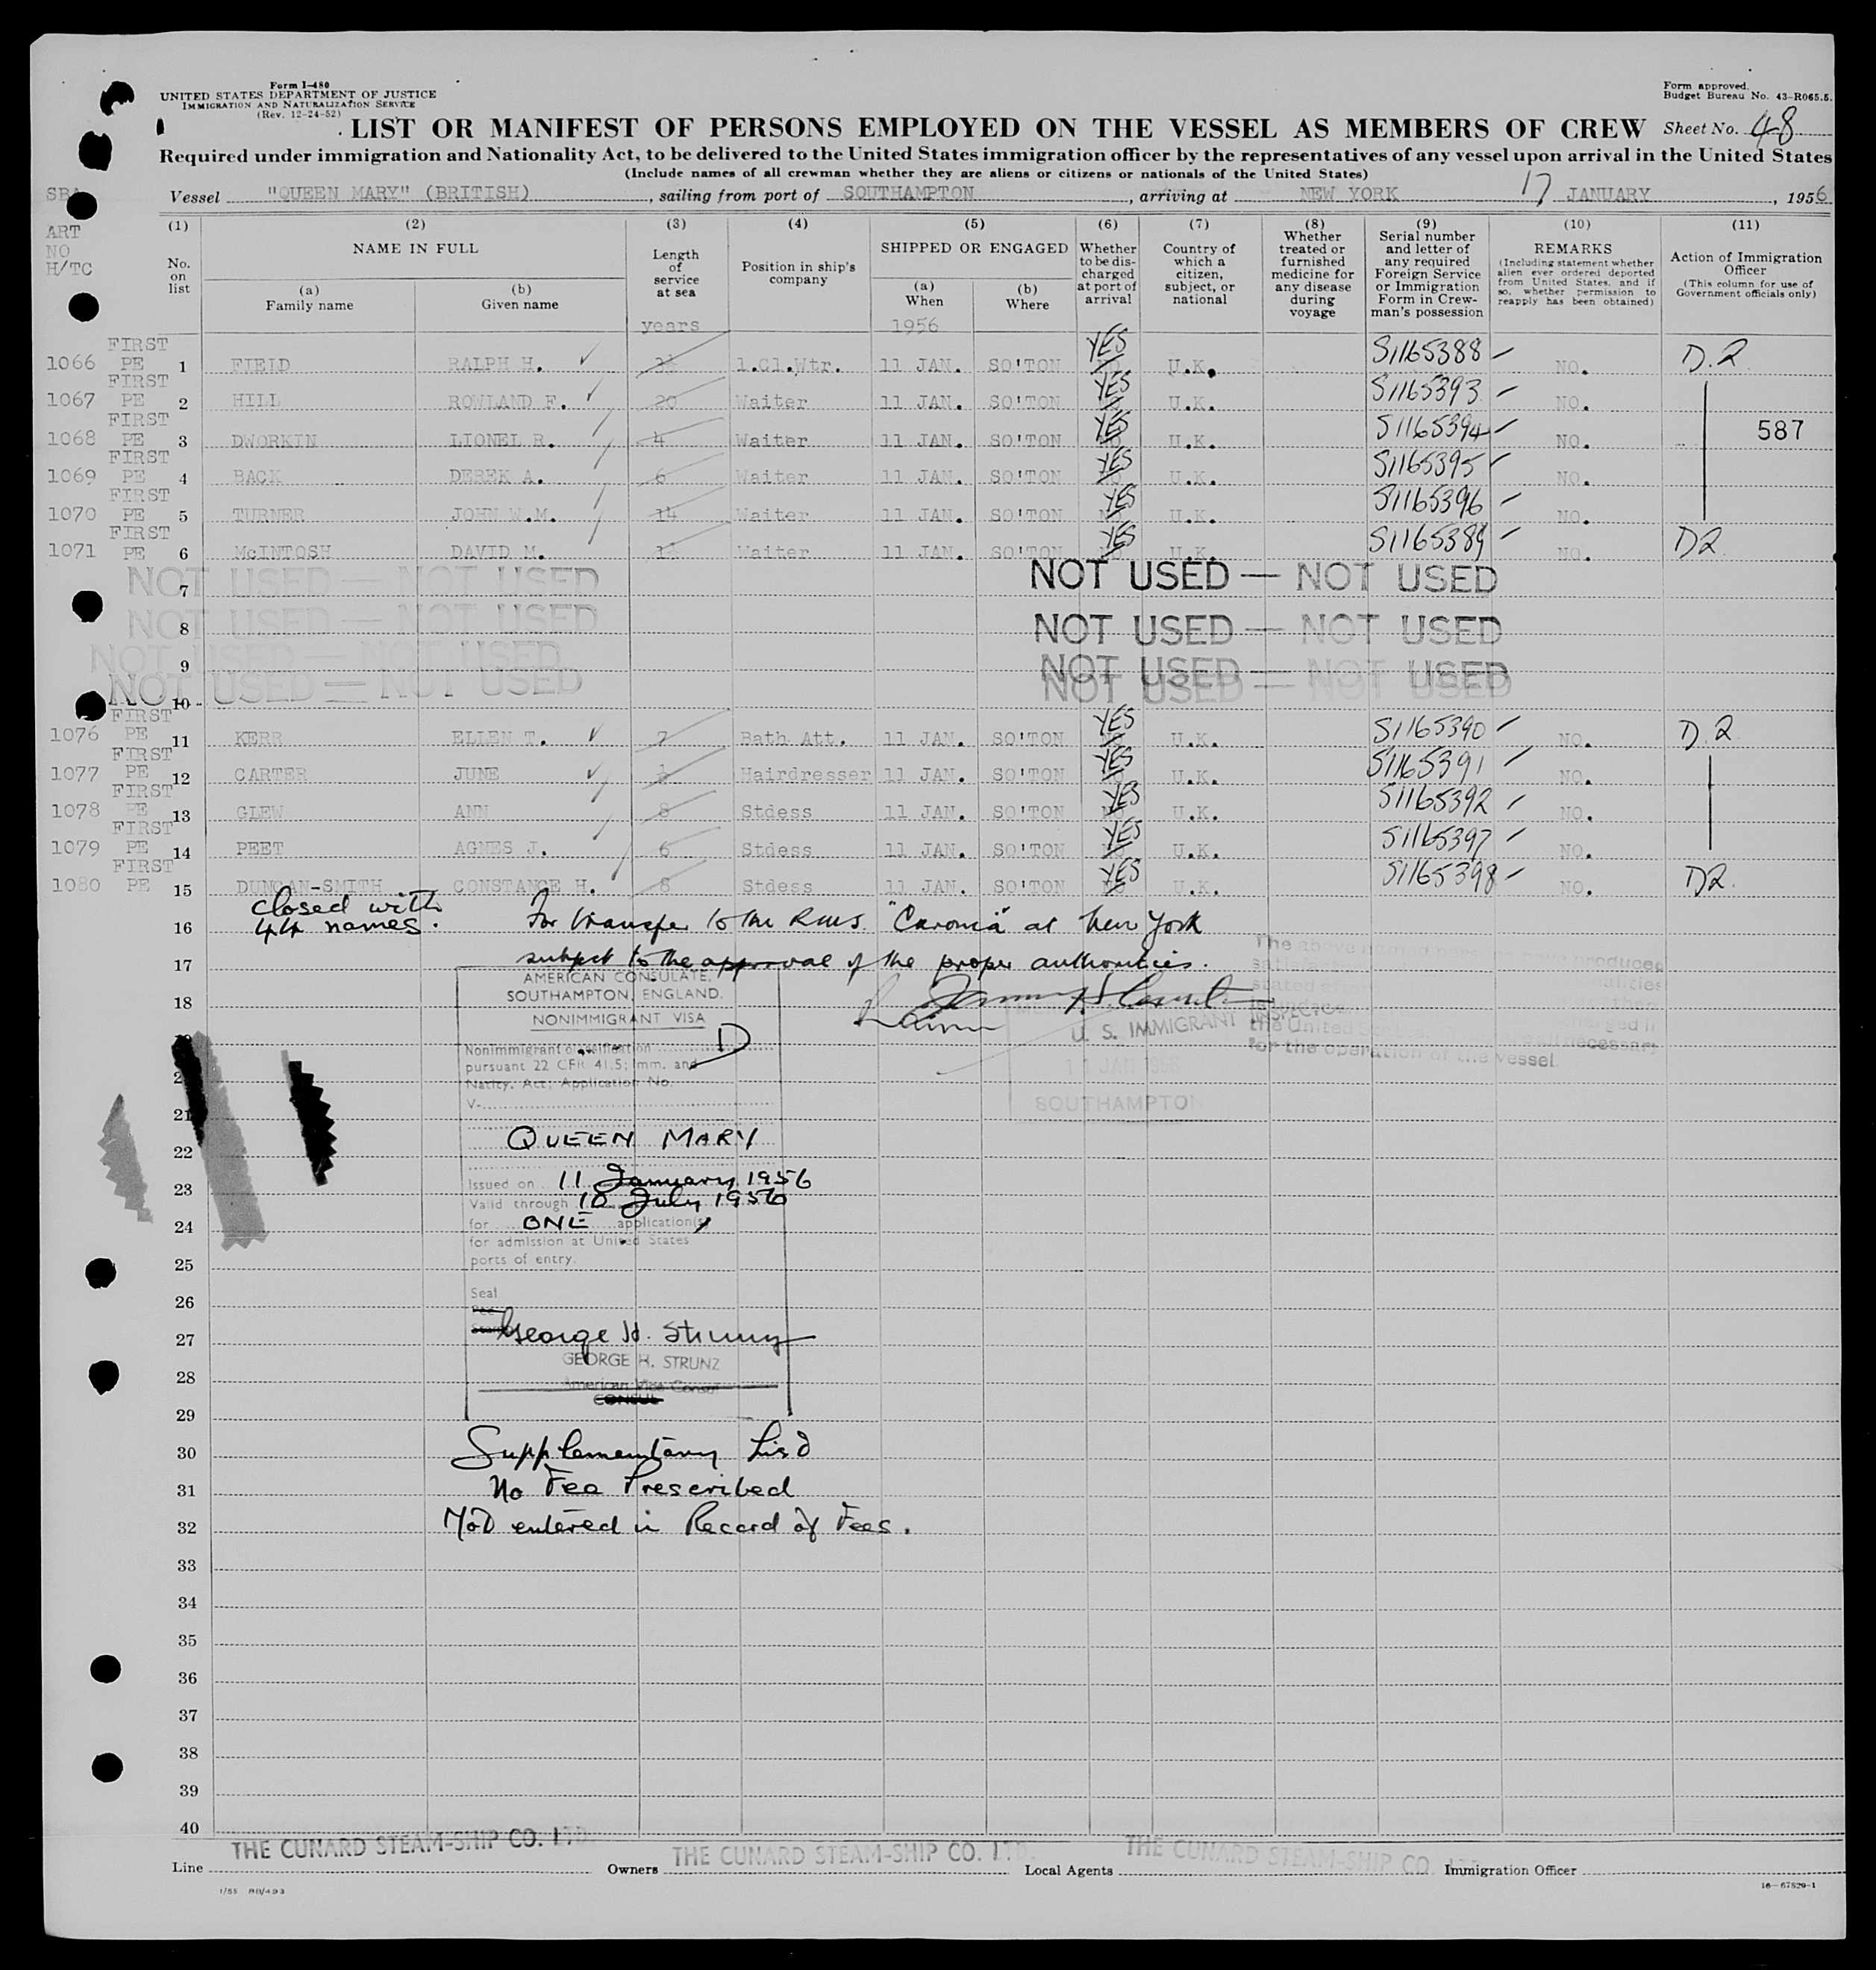 Form I-480
UNITED STATES DEPARTMENT OF JUSTICE
IMMIGRATION AND NATURALIZATION SERVICE
(Rev. 12-24-52)
Form approved.
Budget Bureau No. 43-R065.5.
LIST OR MANIFEST OF PERSONS EMPLOYED ON THE VESSEL AS MEMBERS OF CREW Sheet No. 48
Required under immigration and Nationality Act, to be delivered to the United States immigration officer by the representatives of any vessel upon arrival in the United States
(Include names of all crewman whether they are aliens or citizens or nationals of the United States)
Vessel "QUEEN MARY" (BRITISH), sailing from port of SOUTHAMPTON, arriving at NEW YORK 17 JANUARY, 1956
ART
NO
H/TC
(1) No. on list
(2) NAME IN FULL
(a) Family name
(b) Given name
(3) Length of service at sea
years
(4) Position in ship's company
(5) SHIPPED OR ENGAGED
(a) When
1956
(b) Where
(6) Whether to be discharged at port of arrival
(7) Country of which a citizen, subject, or national
(8) Whether treated or furnished medicine for any disease during voyage
(9) Serial number and letter of any required Foreign Service or Immigration Form in Crewman's possession
(10) REMARKS (Including statement whether alien ever ordered deported from United States, and if so, whether permission to reapply has been obtained)
(11) Action of Immigration Officer (This column for use of Government officials only)
1066 FIRST PE 1 FIELD RALPH H. 1.Cl.Wtr. 11 JAN. SO'TON YES U.K. S1165388 NO. D.2
1067 FIRST PE 2 HILL ROWLAND F. 20 Waiter 11 JAN. SO'TON YES U.K. S1165393 NO.
1068 FIRST PE 3 DWORKIN LIONEL R. 4 Waiter 11 JAN. SO'TON YES U.K. S1165394 NO. 587
1069 FIRST PE 4 BACK DEREK A. 6 Waiter 11 JAN. SO'TON YES U.K. S1165395 NO.
1070 FIRST PE 5 TURNER JOHN W.M. 14 Waiter 11 JAN. SO'TON YES U.K. S1165396 NO.
1071 FIRST PE 6 McINTOSH DAVID M. Waiter 11 JAN. SO'TON YES U.K. S1165389 NO. D2
7 NOT USED — NOT USED NOT USED — NOT USED
8 NOT USED — NOT USED NOT USED — NOT USED
9 NOT USED — NOT USED NOT USED — NOT USED
10 NOT USED — NOT USED NOT USED — NOT USED
1076 FIRST PE 11 KERR ELLEN T. 7 Bath Att. 11 JAN. SO'TON YES U.K. S1165390 NO. D.2
1077 FIRST PE 12 CARTER JUNE Hairdresser 11 JAN. SO'TON YES U.K. S1165391 NO.
1078 FIRST PE 13 GLEW ANN 8 Stdess 11 JAN. SO'TON YES U.K. S1165392 NO.
1079 FIRST PE 14 PEET AGNES J. 6 Stdess 11 JAN. SO'TON YES U.K. S1165397 NO.
1080 FIRST PE 15 DUNCAN-SMITH CONSTANCE H. 8 Stdess 11 JAN. SO'TON YES U.K. S1165398 NO. D2
closed with
44 names.
16 For transfer to the R.M.S. "Caronia" at New York
17 subject to the approval of the proper authorities.
AMERICAN CONSULATE,
SOUTHAMPTON, ENGLAND.
18
NONIMMIGRANT VISA
U. S. IMMIGRANT INSPECTOR
for the operation of the vessel.
Nonimmigrant classification D
pursuant 22 CFR 41.5; Imm. and
Natlty. Act; Application No.
V-
11 JAN 1956
SOUTHAMPTON
21
22 QUEEN MARY
Issued on 11 January 1956
23
Valid through 10 July 1956
24 for ONE application(s)
for admission at United States
ports of entry.
25
Seal
26
George H. Strunz
27
GEORGE H. STRUNZ
28 American Vice Consul
CONSUL
29
30 Supplementary List
31 No Fee Prescribed
32 Not entered in Record of Fees.
33
34
35
36
37
38
39
40
Line THE CUNARD STEAM-SHIP CO. LTD. Owners THE CUNARD STEAM-SHIP CO. LTD. Local Agents THE CUNARD STEAM-SHIP CO. LTD. Immigration Officer
16—67829-1